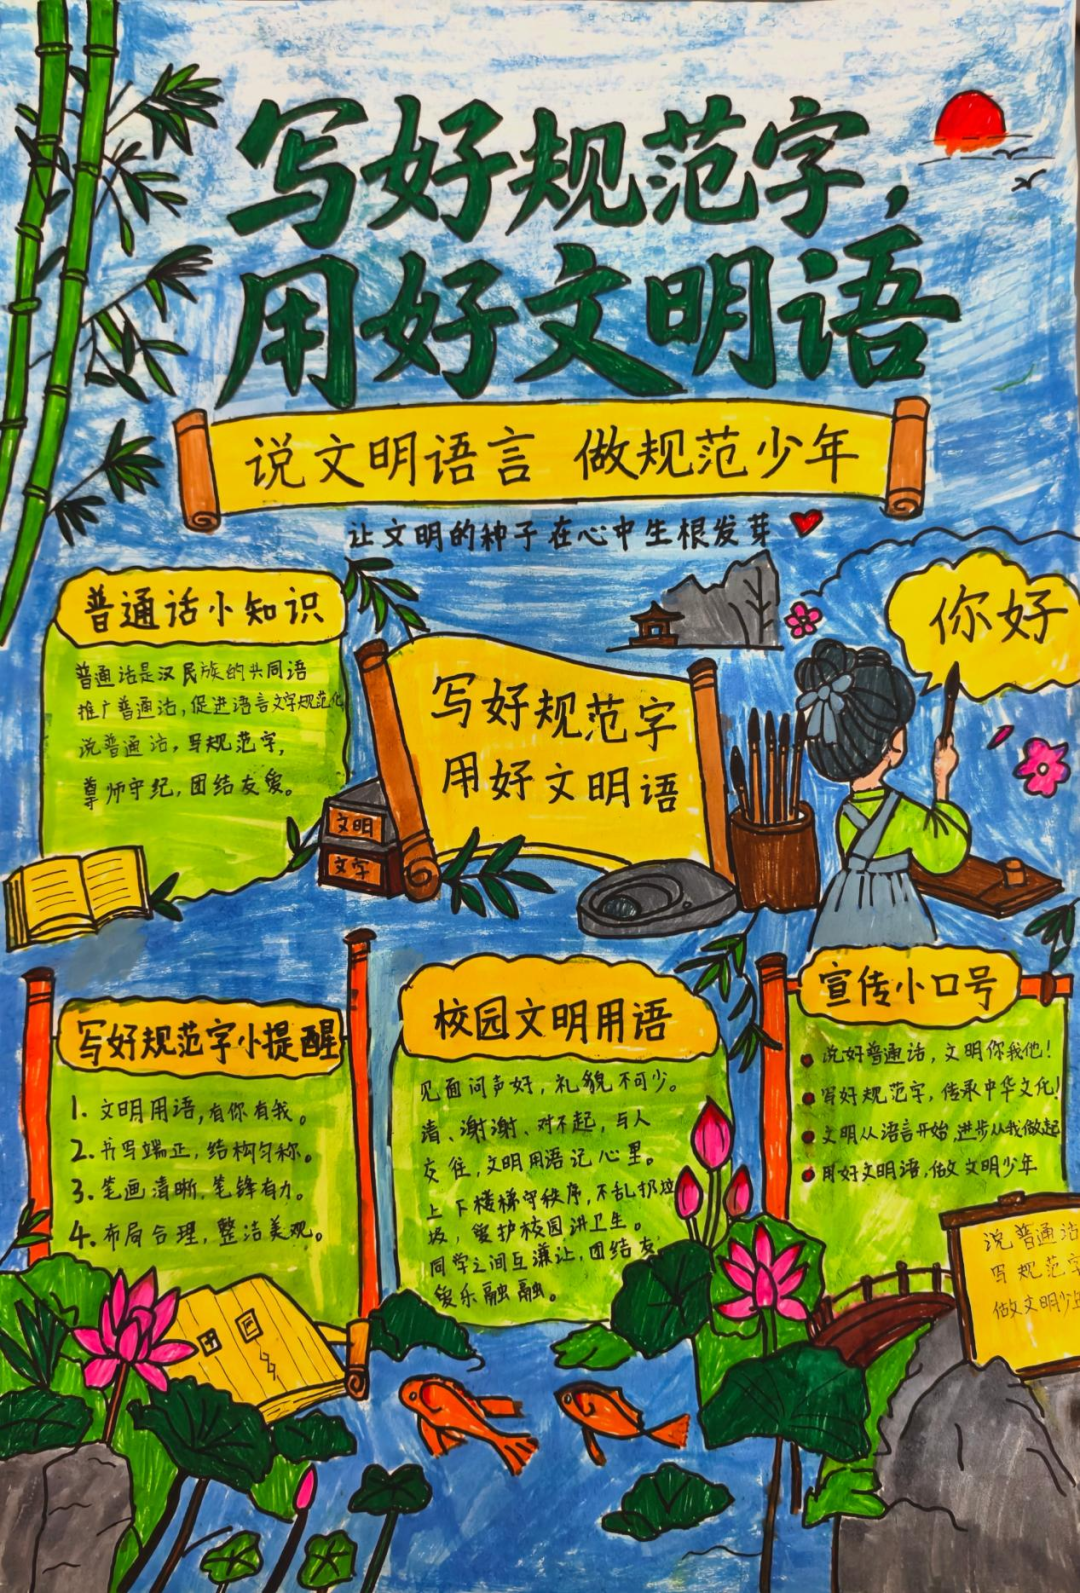 写好规范字，
用好文明语
说文明语言 做规范少年
让文明的种子在心中生根发芽
普通话小知识
普通话是汉民族的共同语
推广普通话，促进语言文字规范化
说普通话，写规范字，
尊师守纪，团结友爱。
写好规范字
用好文明语
文明
文字
你好
写好规范字小提醒
1. 文明用语，有你有我。
2. 书写端正，结构匀称。
3. 笔画清晰，笔锋有力。
4. 布局合理，整洁美观。
校园文明用语
见面问声好，礼貌不可少。
请、谢谢、对不起，与人
交往，文明用语记心里。
上下楼梯守秩序，不乱扔垃
圾，爱护校园讲卫生。
同学之间互谦让，团结友
爱乐融融。
宣传小口号
说好普通话，文明你我他！
写好规范字，传承中华文化！
文明从语言开始，进步从我做起
用好文明语，做文明少年
说普通话
写规范字
做文明少年